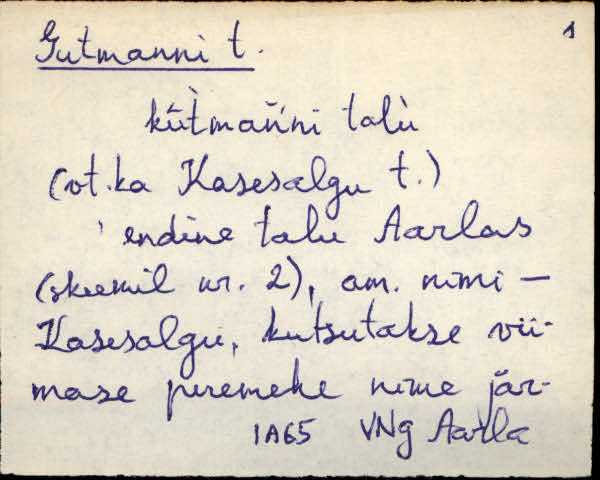 1
Gutmanni t.
kùt̀mańni talù
(vt. ka Kasesalgu t.)
endine talu Aarlas
(skeemil nr. 2), am. nimi –
Kasesalgu, kutsutakse vii-
mase peremehe nime jär-
IA65 VNg Aarla